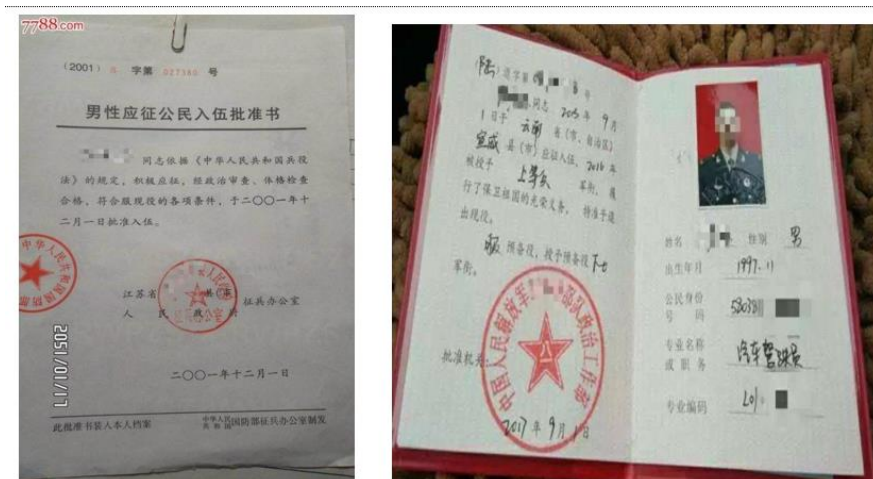 7788.com
(2001) 字第 027380 号
男性应征公民入伍批准书
同志依据《中华人民共和国兵役
法》的规定，积极应征，经政治审查、体格检查
合格，符合服现役的各项条件，于二〇〇一年十
二月一日批准入伍。
中华人民共和国国防部
江苏省 县(市) 征兵办公室
人民政府
二〇〇一年十二月一日
2051/01/17
此批准书装入本人档案
中华人民共和国国防部征兵办公室制发
(陆)退字第 号
同志 年9月
1日于 云南 省(市、自治区)
宣威 县(市)应征入伍，2016年
被授予 上等兵 军衔，履
行了保卫祖国的光荣义务，特准予退
出现役。
服 预备役，授予预备役 下士
军衔。
中国人民解放军 部队政治工作部
批准机关：
2017年9月1日
姓名 性别 男
出生年月 1997.11
公民身份
号码
专业名称 汽车驾驶员
或职务
专业编码